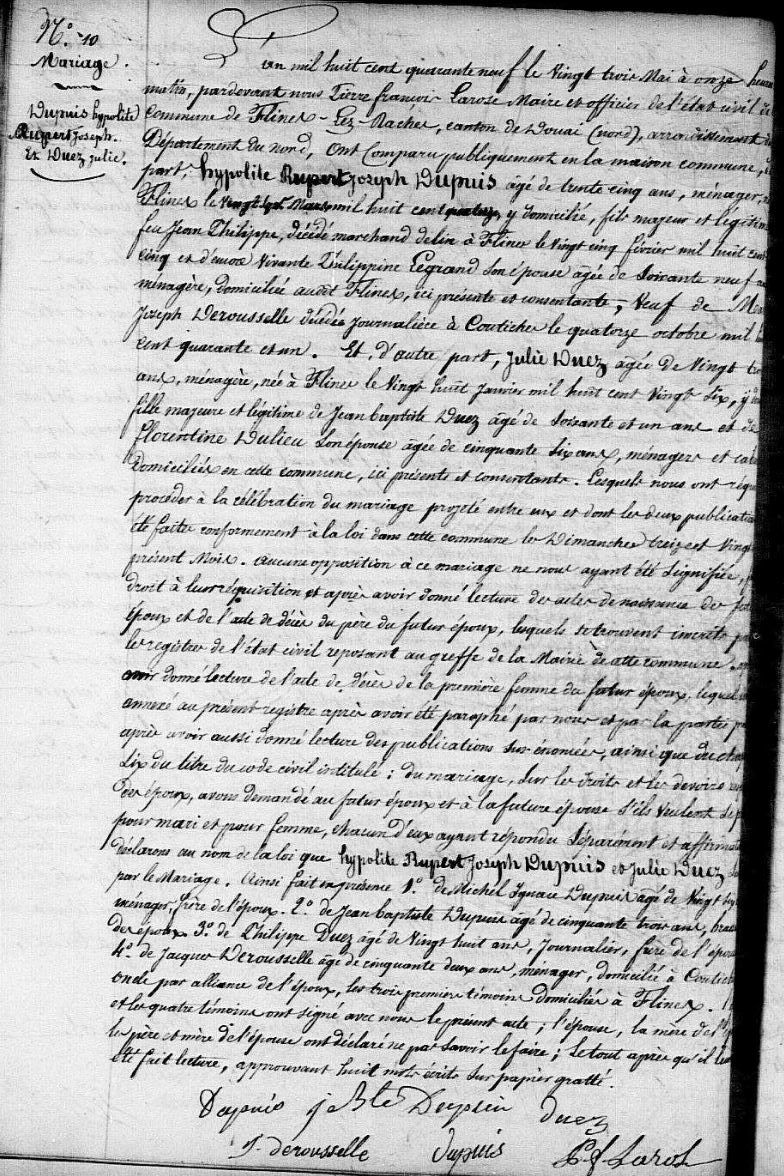 N° 10
Mariage.
Dupuis hypolite
Rupert Joseph.
Et Duez julie.
L'an mil huit cent quarante neuf le vingt trois Mai à onze heures
matin, pardevant nous Pierre françois Larose Maire et officier de l'état civil de
commune de Flines-Lez-Raches, canton de Douai (nord), arrondissement
Département du nord, Ont Comparu publiquement en la maison commune,
part, hypolite Rupert Joseph Dupuis âgé de trente cinq ans, ménager,
Flines le vingt sept Mars mil huit cent quatorze, y domicilié, fils majeur et légitime
feu Jean Philippe, décédé marchand de lin à Flines le vingt cinq février mil huit cent
cinq et d'encore vivante Philippine Legrand son épouse agée de soixante neuf
menagère, domiciliée audit Flines, ici présente et consentante; Veuf de
Joseph Derousselle décédée journalière à Coutiches le quatorze octobre mil
cent quarante et un. Et, d'autre part, Julie Duez agée de Vingt
ans, ménagère, née à Flines le Vingt huit Janvier mil huit cent Vingt Six, y
fille majeure et légitime de Jean baptiste Duez âgé de soixante et un ans et de
florentine Dulieu son épouse agée de cinquante six ans, ménagers et
Domiciliés en cette commune, ici présents et consentants. Lesquels nous ont
procéder à la célébration du mariage projeté entre eux et dont les deux publications
été faites conformement à la loi dans cette commune les Dimanches treize et Vingt
présent Mois. aucune opposition à ce mariage ne nous ayant été signifiée,
droit à leur réquisition et après avoir donné lecture des actes de naissance des
époux et de l'acte de décès du père du futur époux, lesquels se trouvent inscrits
les registres de l'état civil reposant au greffe de la Mairie de cette commune
avoir donné lecture de l'acte de décès de la première femme du futur époux, lequel
annexé au présent registre après avoir été paraphé par nous et par la partie
après avoir aussi donné lecture des publications sus énoncées, ainsi que du
six du titre du code civil intitulé: du mariage, sur les droits et les devoirs
des époux, avons demandé au futur époux et à la future épouse s'ils veulent se
pour mari et pour femme, chacun d'eux ayant répondu séparément et
déclarons au nom de la loi que hypolite Rupert Joseph Dupuis et Julie Duez
par le Mariage. Ainsi fait en présence 1°. de Michel Ignace Dupuis agé de Vingt
ménager, frère de l'époux. 2°. de Jean baptiste Dupuis agé de cinquante trois ans,
des époux. 3°. de Philippe Duez âgé de Vingt huit ans, Journalier, frère de l'épouse
4°. de Jacques Derousselle âgé de cinquante deux ans, ménager, domicilié à
oncle par alliance de l'époux, les trois premiers témoins domiciliés à Flines.
et les quatre témoins ont signé avec nous le présent acte; l'épouse, la mère de
les père et mère de l'épouse ont déclaré ne pas savoir le faire; Le tout après qu'il
été fait lecture, approuvant huit mots écrits sur papier gratté.
Dupuis j Bte Dupuis Duez
J. derousselle dupuis P. f. Larose